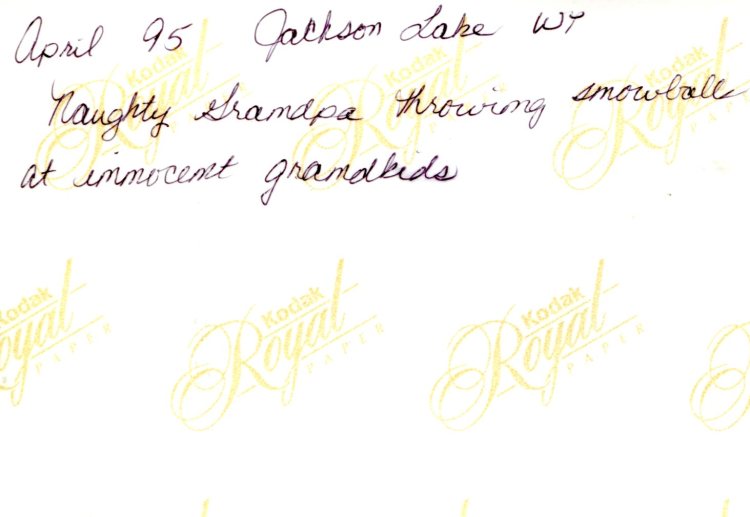 April 95 Jackson Lake WY
Naughty Grandpa throwing snowballs
at innocent grandkids
Kodak Royal PAPER
Kodak Royal PAPER
Kodak Royal PAPER
Kodak Royal PAPER
Kodak Royal PAPER
Kodak Royal PAPER